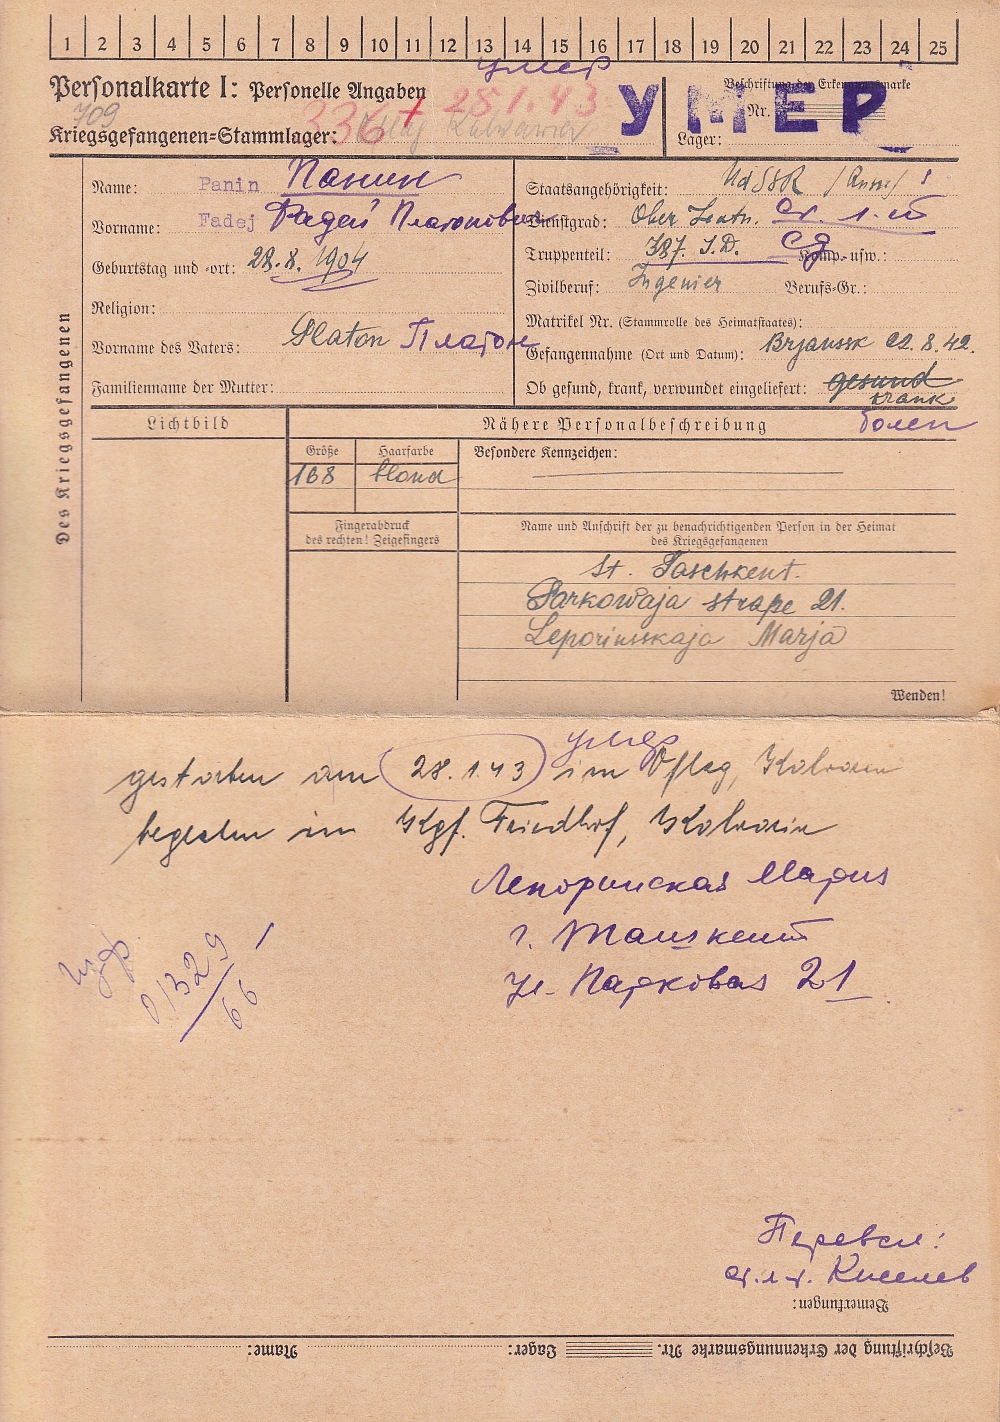 1 2 3 4 5 6 7 8 9 10 11 12 13 14 15 16 17 18 19 20 21 22 23 24 25
умер
Personalkarte I: Personelle Angaben
Beschriftung der Erkennungsmarke
709
336 + 28.1.43
УМЕР
Nr.
Kriegsgefangenen-Stammlager:
Lager:
Des Kriegsgefangenen
Name: Panin Панин
Vorname: Fadej Фадей Платонович
Geburtstag und -ort: 28.8.1904
Religion:
Vorname des Vaters: Platon Платон
Familienname der Mutter:
Staatsangehörigkeit: UdSSR /Russe/
Dienstgrad: Ober Leutn. ст. л-т
Truppenteil: 387. I.D. сд Komp. usw.:
Zivilberuf: Ingenier Berufs-Gr.:
Matrikel Nr. (Stammrolle des Heimatstaates):
Gefangennahme (Ort und Datum): Brjanssk 22.8.42.
Ob gesund, krank, verwundet eingeliefert: gesund
krank
болен
Lichtbild
Nähere Personalbeschreibung
Größe Haarfarbe Besondere Kennzeichen:
168 blond
Fingerabdruck
des rechten! Zeigefingers
Name und Anschrift der zu benachrichtigenden Person in der Heimat
des Kriegsgefangenen
St. Taschkent.
Parkowaja straße 21.
Leporinskaja Marja
Wenden!
умер
gestorben am 28.1.43 im Oflag, Kalvarien
begraben im Kgf. Friedhof, Kalvarien
Лепоринская Мария
г. Ташкент
ул. Парковая 21
01329
66
Перевел:
ст. л-т. Киселев
Bemerkungen:
Beschriftung der Erkennungsmarke Nr. Lager: Name: